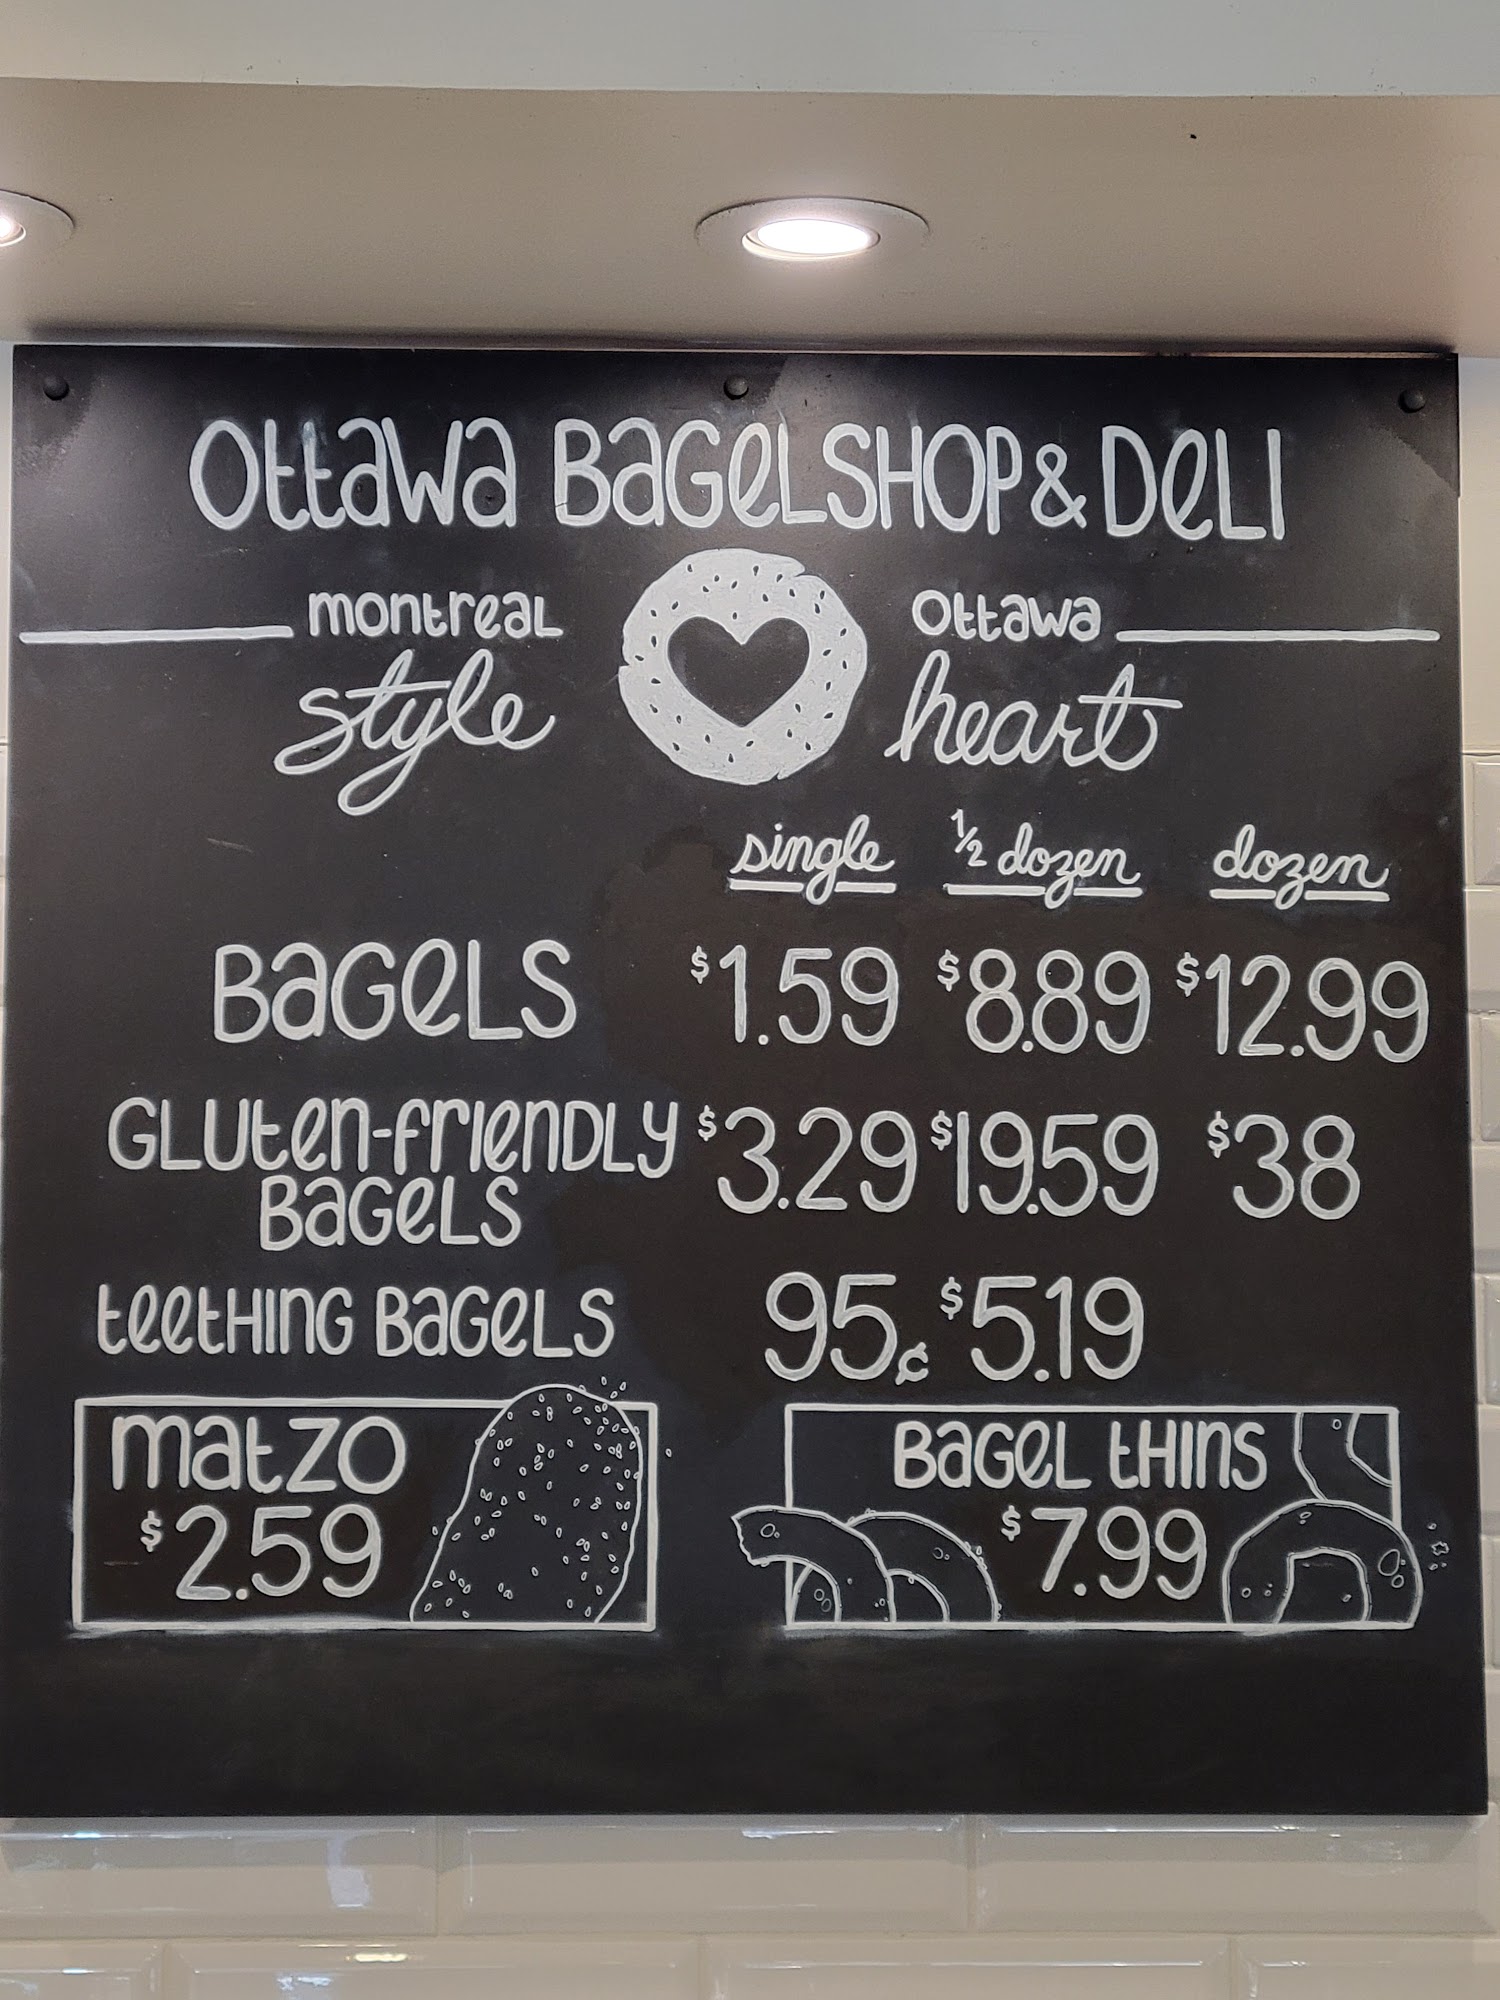 Ottawa BagelSHOP & Deli
montreal Ottawa
style heart
single ½ dozen dozen
BAGELS $1.59 $8.89 $12.99
GLUTEN-FRIENDLY $3.29 $19.59 $38
BAGELS
TEETHING BAGELS 95¢ $5.19
MATZO
$2.59
BAGEL THINS
$7.99